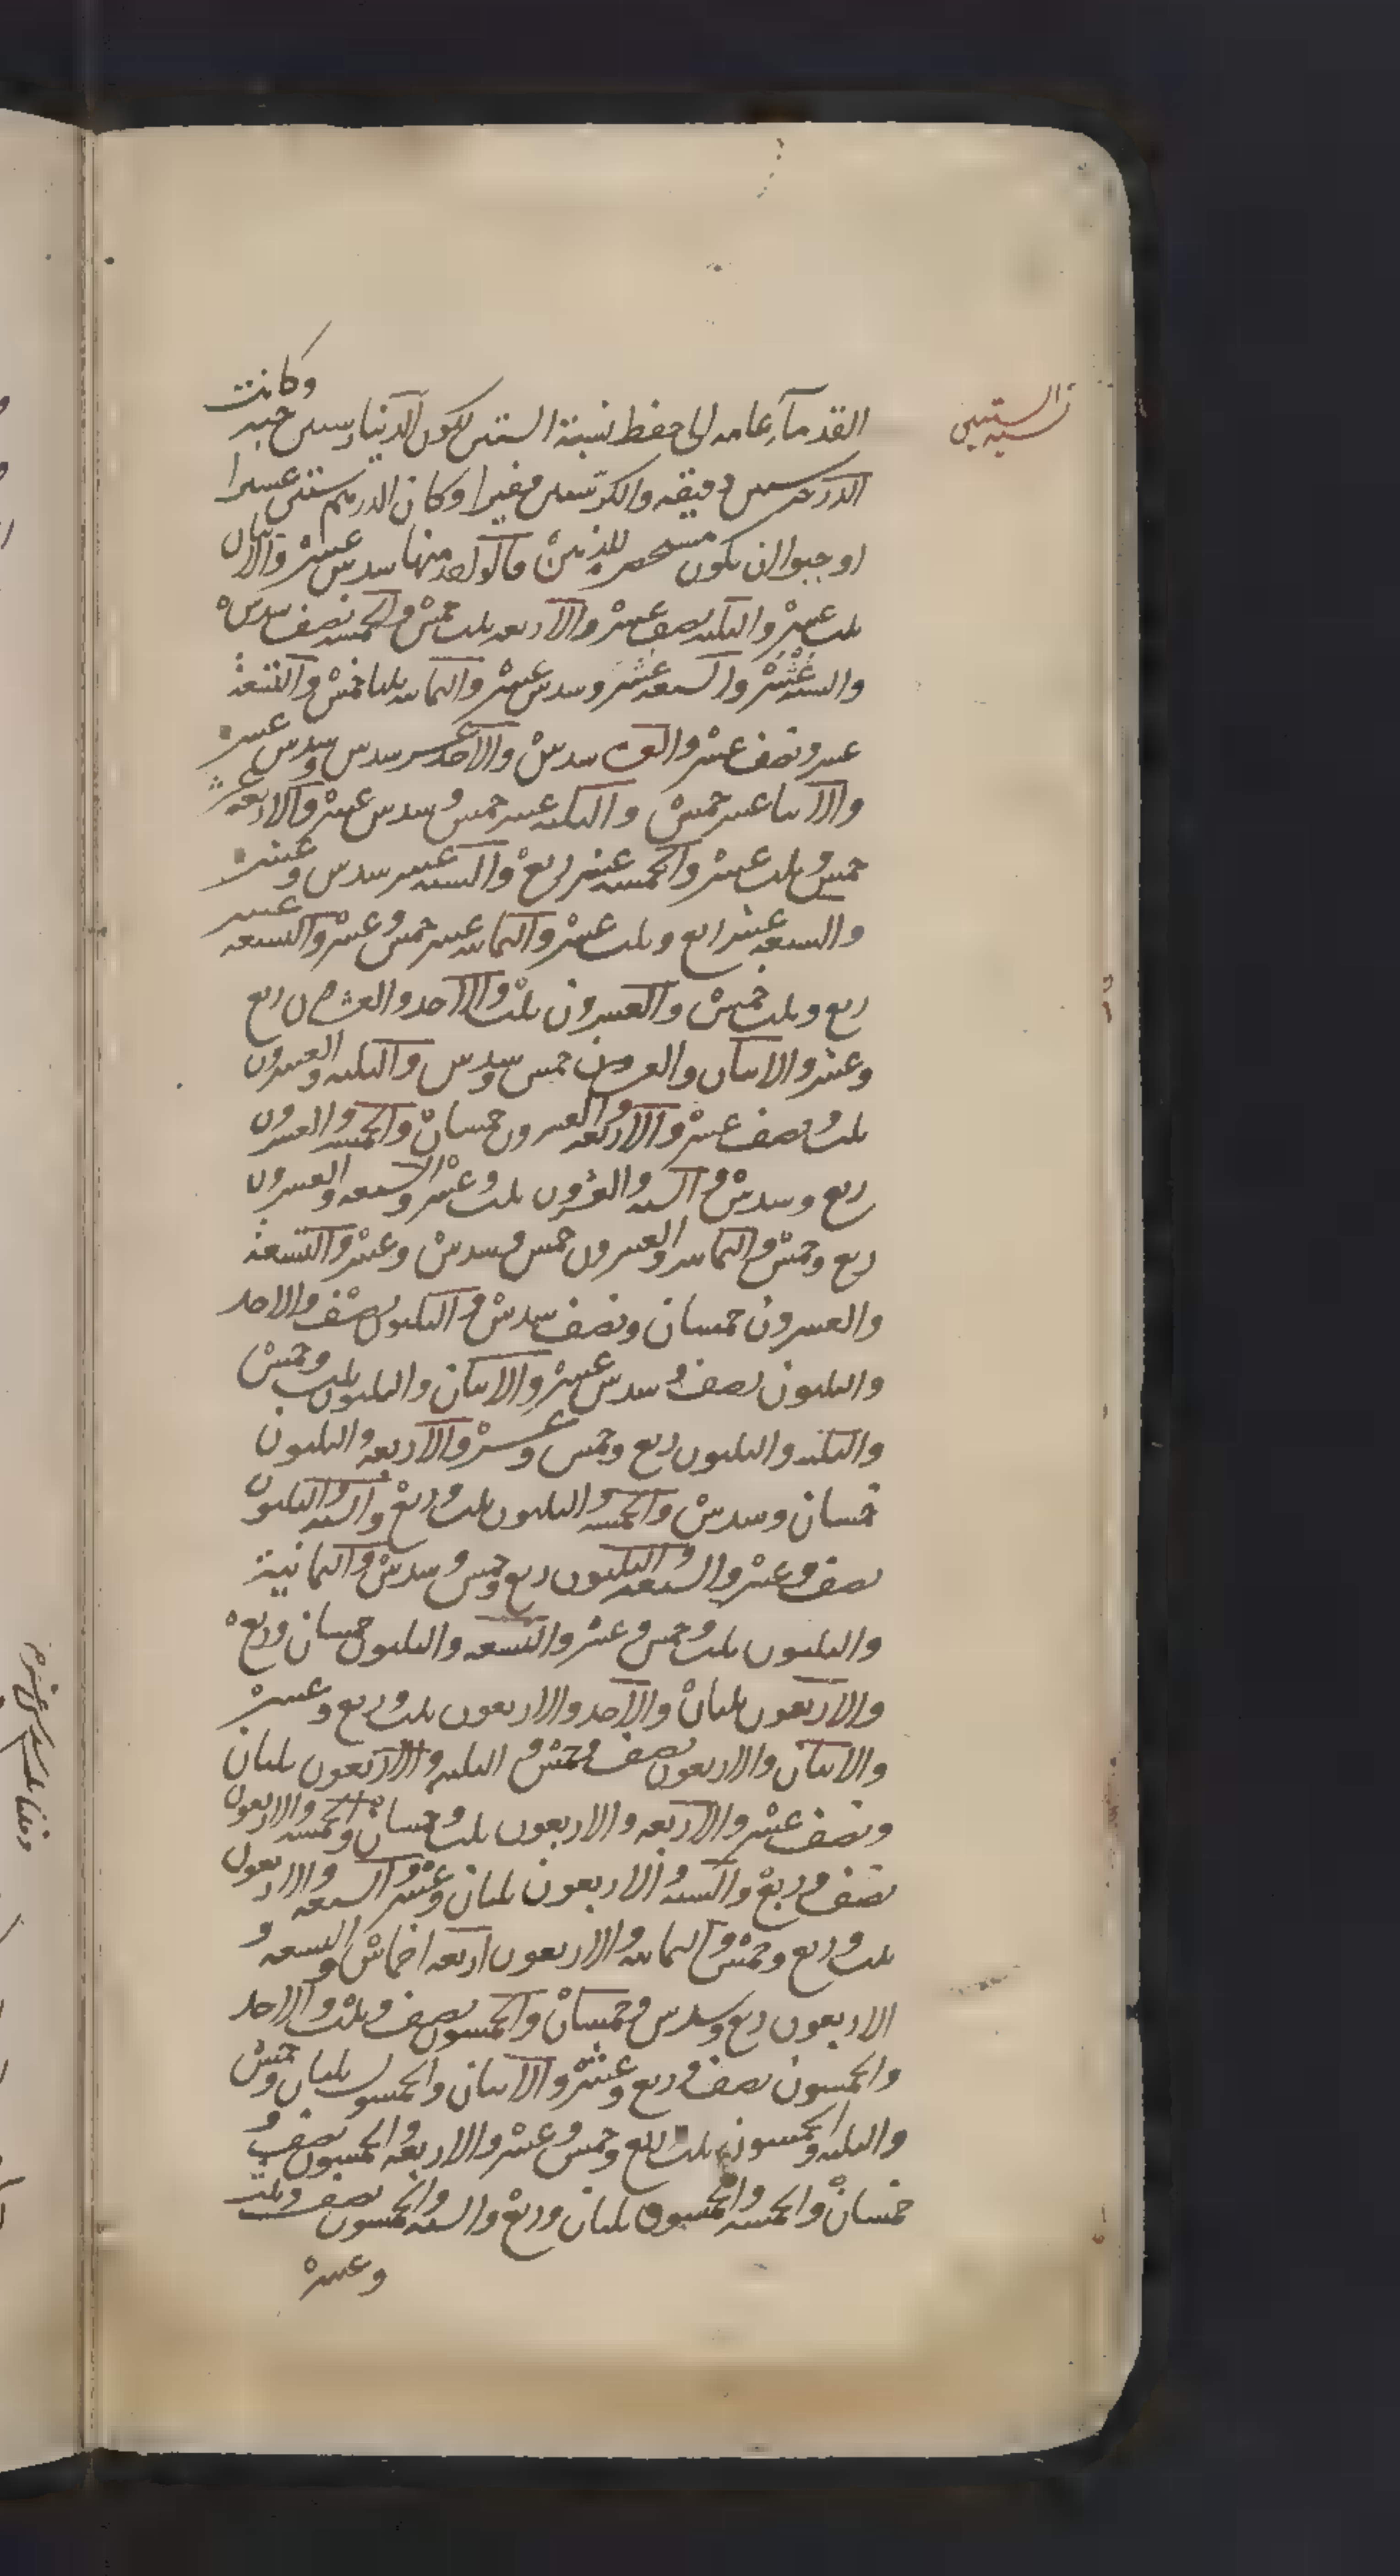 نسبة الستين
وكانت
القدمآء عامه الى حفظ نسبة الستين لكون الدينار ستين حبه
الدرجه ستين دقيقه والكر ستين قفيزا وكان الدرهم ستين عشيرا
اوجبوا ان يكون مستحضر للذهن فالواحد منها سدس عشر والاثنان
ثلث عشر والثلثه نصف عشر والاربعه ثلث خمس والخمسه نصف سدس
والسته عشر والسبعه عشر وسدس عشر والثمانيه ثلثا خمس والتسعة
عشر ونصف عشر والعشره سدس والاحد عشر سدس وسدس عشر
والاثنا عشر خمس والثلثه عشر خمس وسدس عشر والاربعه عشر
خمس وثلث عشر والخمسه عشر ربع والسته عشر سدس وعشر
والسبعه عشر ربع وثلث عشر والثمانيه عشر خمس وعشر والتسعه عشر
ربع وثلث خمس والعشرون ثلث والاحد والعشرون ربع
وعشر والاثنان والعشرون خمس وسدس والثلثه والعشرون
ثلث ونصف عشر والاربعه والعشرون خمسان والخمسه والعشرون
ربع وسدس والسته والعشرون ثلث وعشر والسبعه والعشرون
ربع وخمس والثمانيه والعشرون خمس وسدس وعشر والتسعة
والعشرون خمسان ونصف سدس والثلثون نصف والاحد
والثلثون نصف وسدس عشر والاثنان والثلثون ثلث وخمس
والثلثه والثلثون ربع وخمس وعشر والاربعه والثلثون
خمسان وسدس والخمسه والثلثون ثلث وربع والسته والثلثون
نصف وعشر والسبعه والثلثون ربع وخمس وسدس والثمانية
والثلثون ثلث وخمس وعشر والتسعه والثلثون خمسان وربع
والاربعون ثلثان والاحد والاربعون ثلث وربع وعشر
والاثنان والاربعون نصف وخمس والثلثه والاربعون ثلثان
ونصف عشر والاربعه والاربعون ثلث وخمسان والخمسه والاربعون
نصف وربع والسته والاربعون ثلثان وعشر والسبعه والاربعون
ثلث وربع وخمس والثمانيه والاربعون اربعه اخماس والتسعه و
الاربعون ربع وسدس وخمسان والخمسون نصف وثلث والاحد
والخمسون نصف وربع وعشر والاثنان والخمسون ثلثان وخمس
والثلثه والخمسون ثلث وربع وخمس وعشر والاربعه والخمسون نصف و
خمسان والخمسه والخمسون ثلثان وربع والسته والخمسون نصف وثلث
وعشر